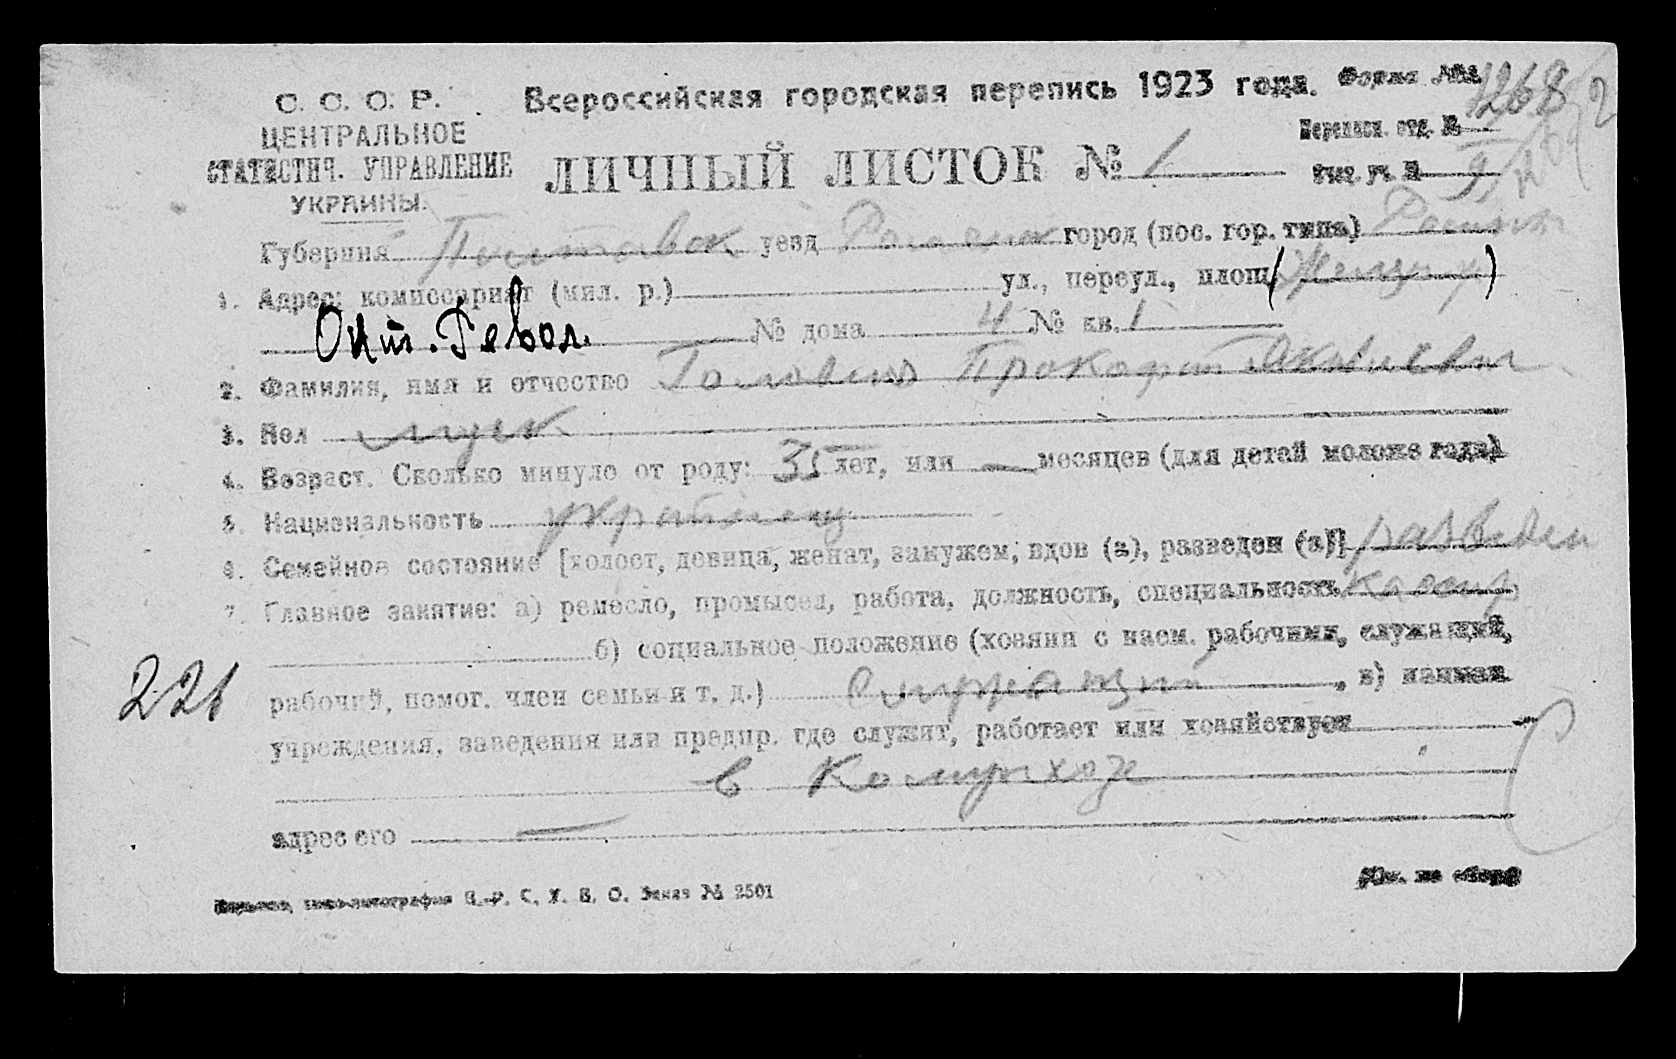 С. С. С. Р.
ЦЕНТРАЛЬНОЕ
СТАТИСТИЧ. УПРАВЛЕНИЕ
УКРАИНЫ.
Всероссийская городская перепись 1923 года. Форма №
1268
Переписн. отд. №
ЛИЧНЫЙ ЛИСТОК № 1
Счет. уч. №
Губерния Полтавск уезд Роменск город (пос. гор. типа) Ромны
1. Адрес: комиссариат (мил. р.) ул., переул., площ
Окт. Револ. № дома 4 № кв. 1
2. Фамилия, имя и отчество Головко Прокофий Яковлевич
3. Пол муж
4. Возраст. Сколько минуло от роду: 35 лет, или — месяцев (для детей моложе года)
5. Национальность украинец
6. Семейное состояние [холост, девица, женат, замужем, вдов (а), разведен (а)] разведен
7. Главное занятие: а) ремесло, промысел, работа, должность, специальность кассир
б) социальное положение (хозяин с наем. рабочими, служащий,
рабочий, помог. член семьи и т. д.) служащий, в) наимен.
учреждения, заведения или предпр. где служит, работает или хозяйствует
в Комунхозе
221
адрес его —
С. Х. В. О. Заказ № 2501
(См. на обор)